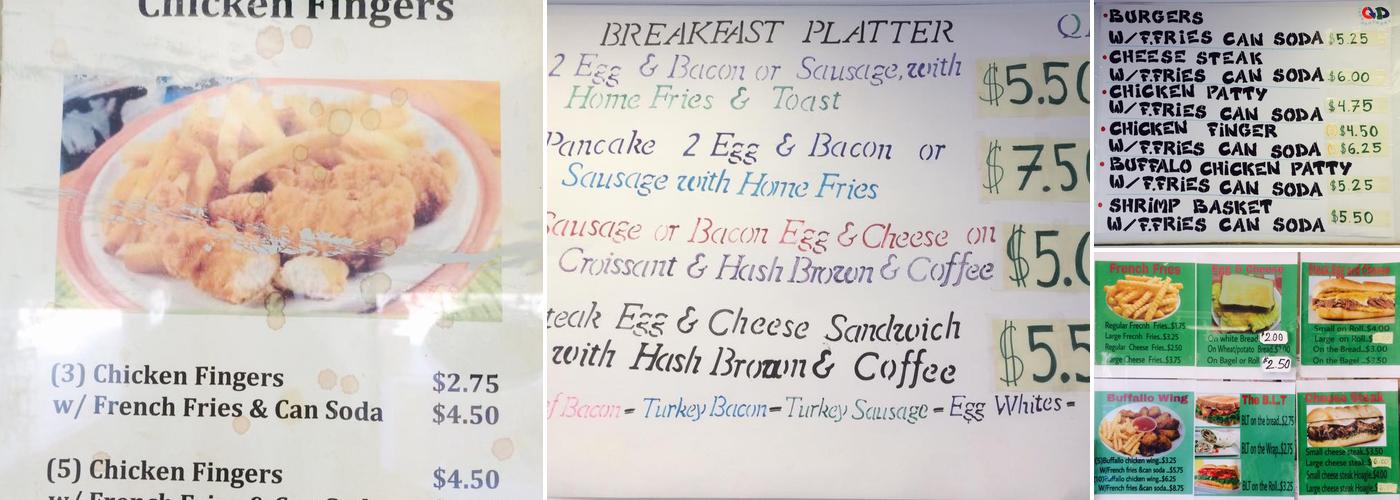 Chicken Fingers
(3) Chicken Fingers $2.75
w/ French Fries & Can Soda $4.50
(5) Chicken Fingers $4.50
BREAKFAST PLATTER
2 Egg & Bacon or Sausage, with
Home Fries & Toast
$5.50
Pancake 2 Egg & Bacon or
Sausage with Home Fries
$7.5
Sausage or Bacon Egg & Cheese on
Croissant & Hash Brown & Coffee
$5.0
teak Egg & Cheese Sandwich
with Hash Brown & Coffee
$5.5
f Bacon - Turkey Bacon - Turkey Sausage - Egg Whites -
QD
•BURGERS
W/F.FRIES CAN SODA $5.25
•CHEESE STEAK
W/F.FRIES CAN SODA $6.00
•CHICKEN PATTY
W/F.FRIES CAN SODA $4.75
•CHICKEN FINGER $4.50
W/F.FRIES CAN SODA $6.25
•BUFFALO CHICKEN PATTY
W/F.FRIES CAN SODA $5.25
•SHRIMP BASKET
W/F.FRIES CAN SODA $5.50
French Fries
Regular Frecnh Fries..$1.75
Large Frecnh Fries..$3.25
Regular Cheese Fries..$2.50
Large Cheese Fries..$3.75
Egg & Cheese
On white Bread $2.00
On Wheat/potato Bread
On Bagel or Roll $2.50
Steak Egg and Cheese
Small on Roll..$4.00
Large on Roll..$
On the Bread..$3.00
On the Bagel
Buffallo Wing
(5)Buffallo chicken wing..$3.25
W/French fries &can soda ..$5.75
(10)Buffallo chicken wing..$6.25
W/French fries &can soda..$8.75
The B.L.T
BLT on the bread..$2.75
BLT on the Wrap..$2.75
BLT on the Roll..$3.25
Cheese Steak
Small cheese steak..$3.50
Large cheese steak..$
Small cheese steak Hoagie..$4.00
Large cheese steak Hoagie..$